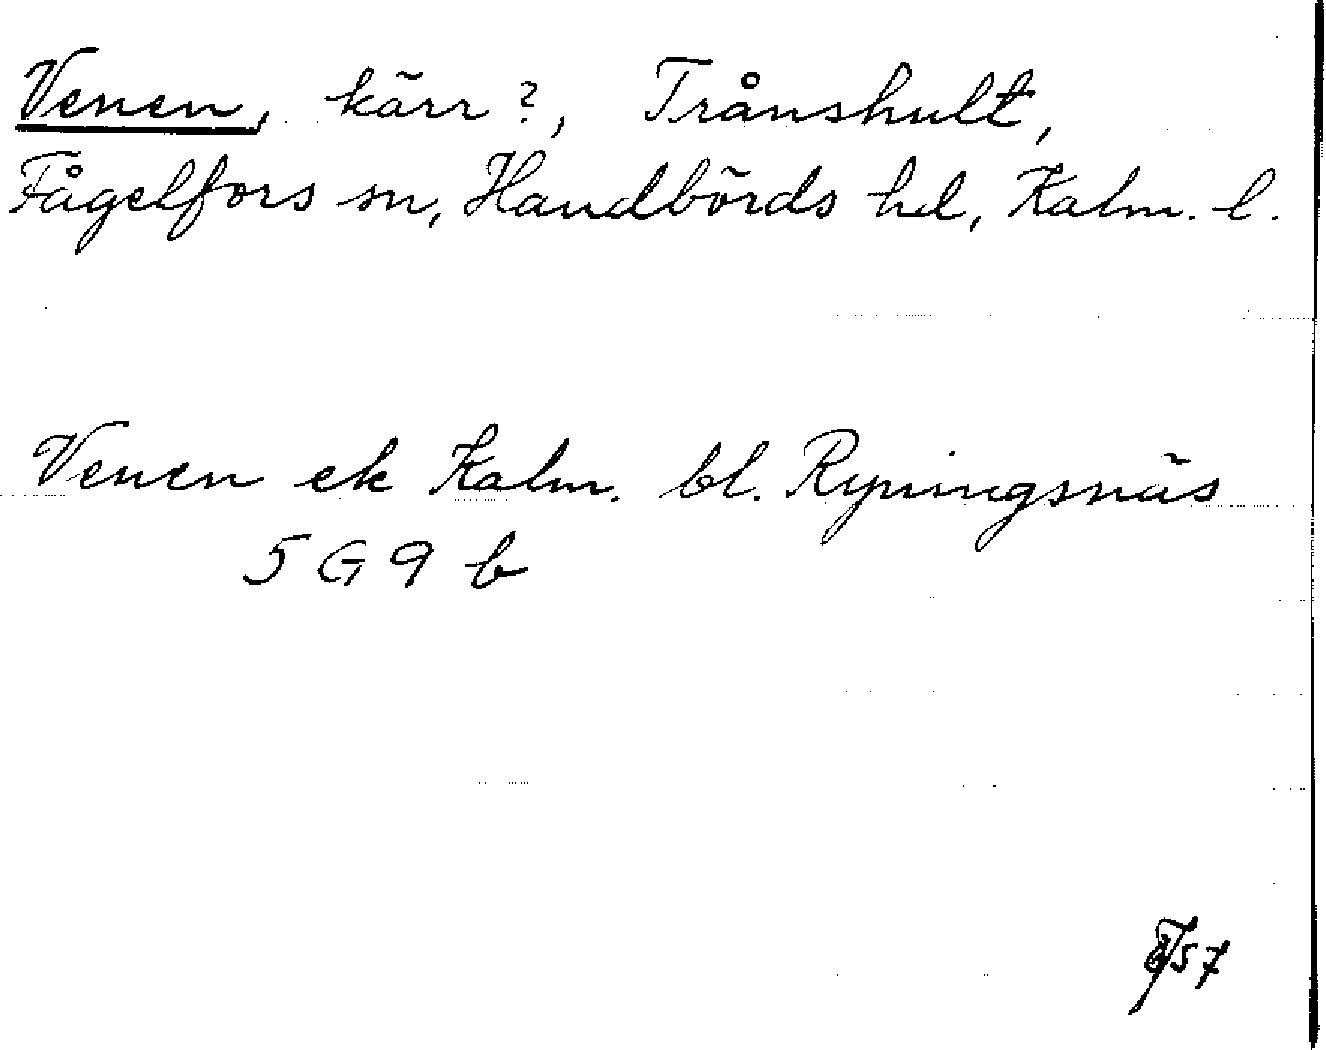 Venen, kärr?, Trånshult,
Fågelfors sn, Handbörds hd, Kalm. l.
Venen ek Kalm. bl. Ryningsnäs
5 G 9 b